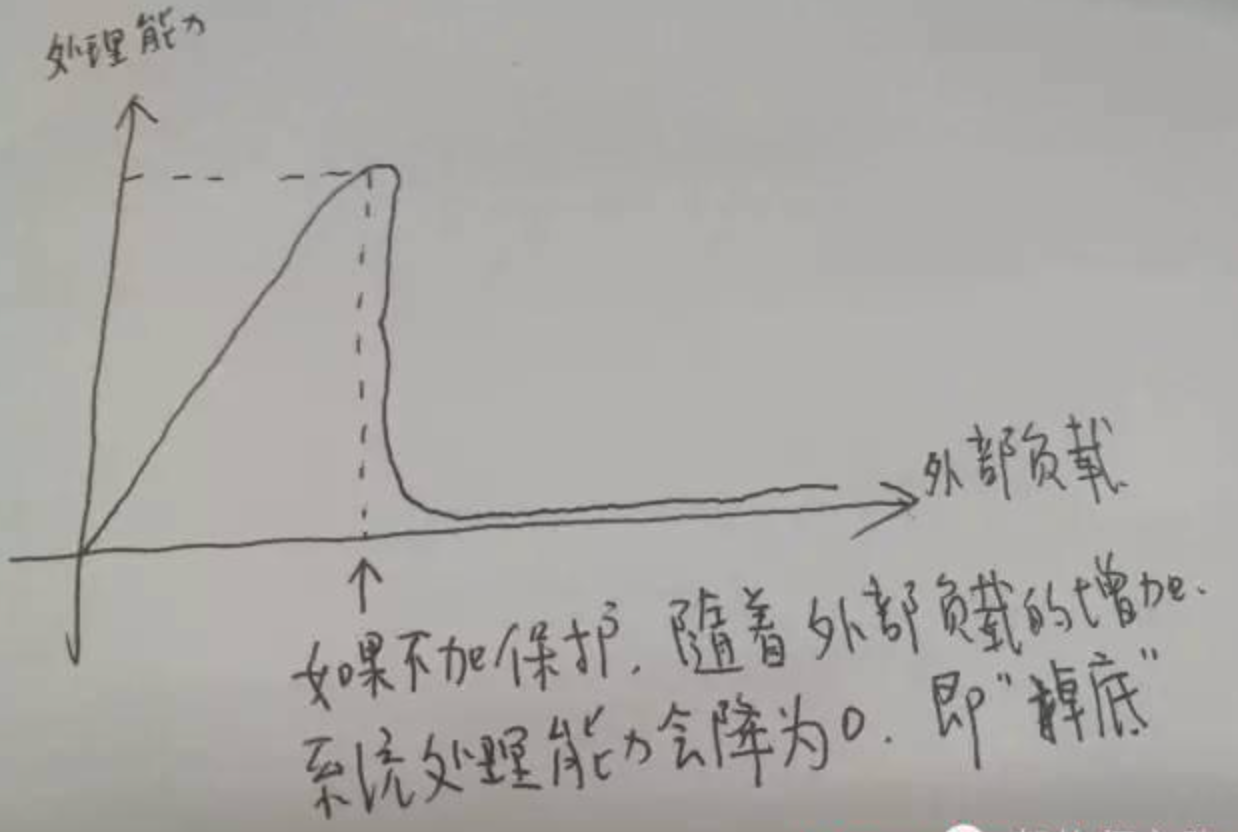 处理能力
外部负载
如果不加保护,随着外部负载的增加.
系统处理能力会降为0.即"掉底"